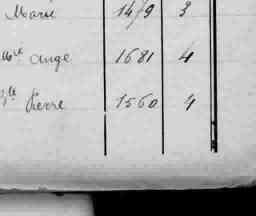 Marie 1479 3
ange 1681 4
Pierre 1560 4